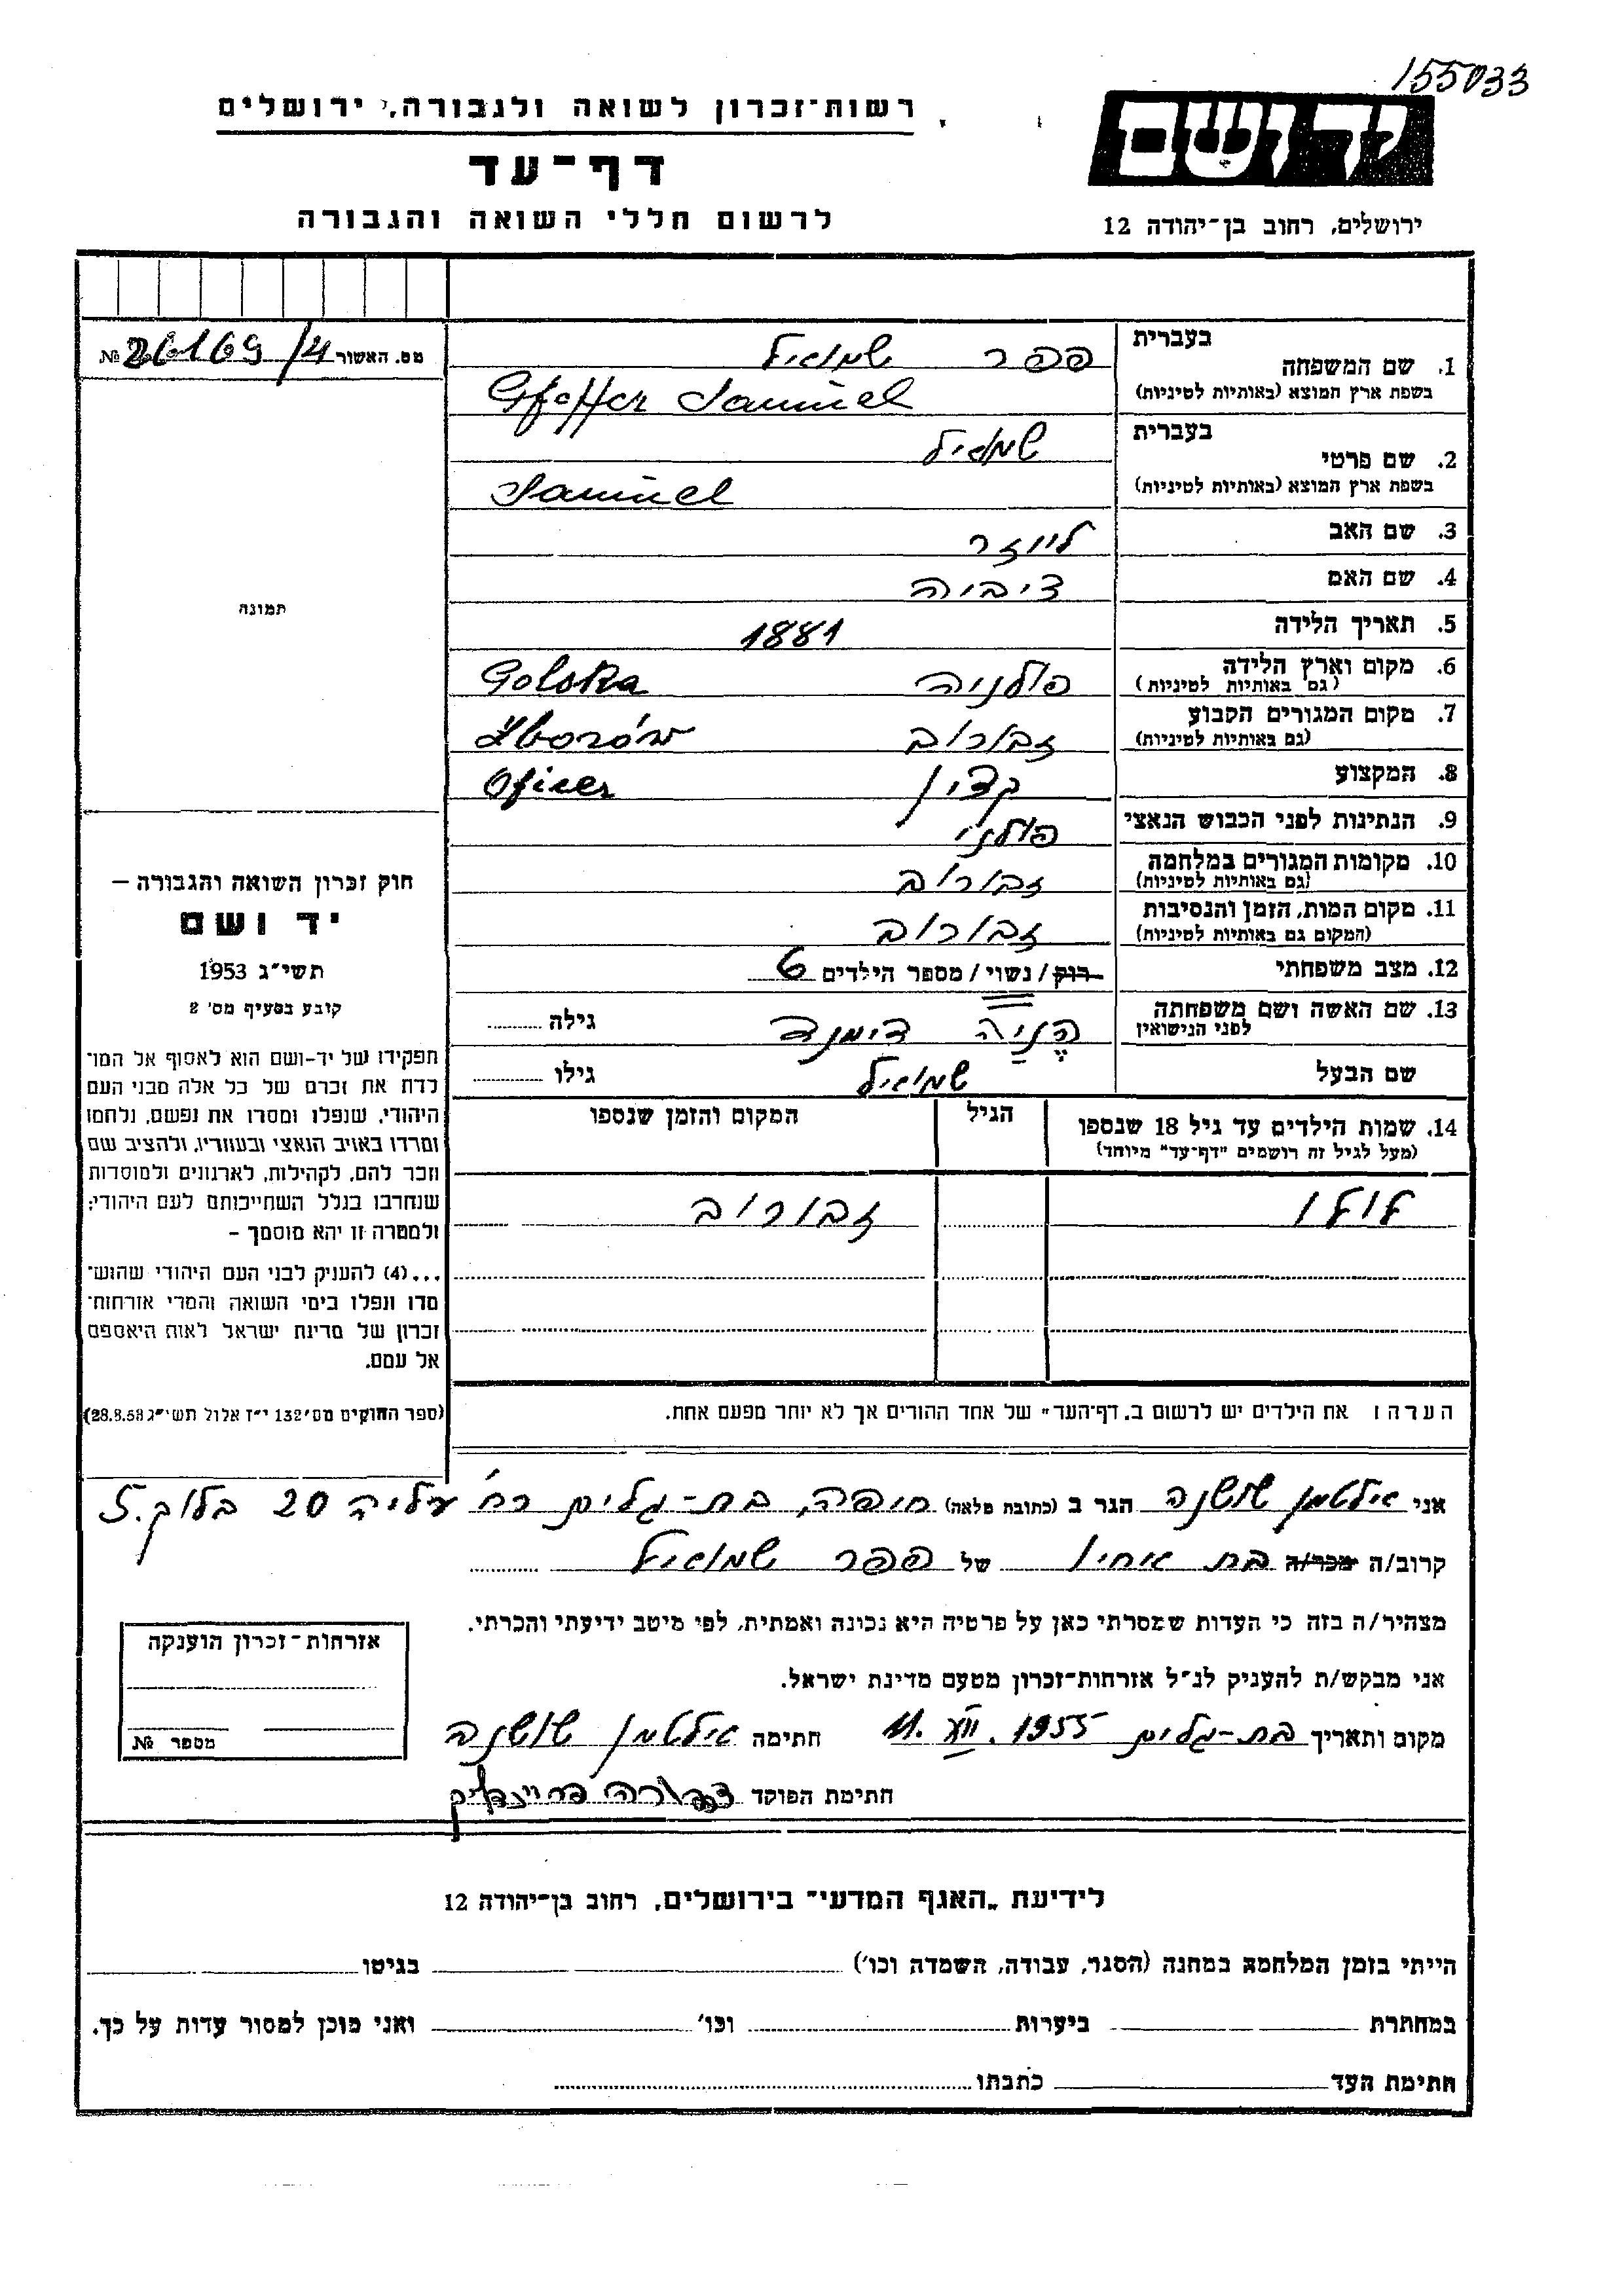 155033
רשות-זכרון לשואה ולגבורה, ירושלים
דף-עד
לרשום חללי השואה והגבורה
ידושם
ירושלים, רחוב בן-יהודה 12
מס. האשור 26169/4 №
בעברית פפר שמואיל
1. שם המשפחה
בשפת ארץ המוצא (באותיות לטיניות) Gfeffer Samuel
בעברית שמואיל
2. שם פרטי
בשפת ארץ המוצא (באותיות לטיניות) Samuel
3. שם האב לייזר
4. שם האם ציביה
5. תאריך הלידה 1881
6. מקום וארץ הלידה פולניה Golska
(גם באותיות לטיניות)
7. מקום המגורים הקבוע זבורוב Zborów
(גם באותיות לטיניות)
8. המקצוע קצין Oficer
9. הנתינות לפני הכבוש הנאצי פולני
10. מקומות המגורים במלחמה זבורוב
(גם באותיות לטיניות)
11. מקום המות, הזמן והנסיבות זבורוב
(המקום גם באותיות לטיניות)
12. מצב משפחתי רוק / נשוי / מספר הילדים 6
13. שם האשה ושם משפחתה הניה דימנד גילה
לפני הנישואין
שם הבעל שמואיל גילו
14. שמות הילדים עד גיל 18 שנספו הגיל המקום והזמן שנספו
(מעל לגיל זה רושמים "דף-עד" מיוחד)
לולו זבורוב
תמונה
חוק זכרון השואה והגבורה –
יד ושם
תשי"ג 1953
קובע בסעיף מס' 2
תפקידו של יד-ושם הוא לאסוף אל המו-
לדת את זכרם של כל אלה מבני העם
היהודי, שנפלו ומסרו את נפשם, נלחמו
ומרדו באויב הנאצי ובעוזריו, ולהציב שם
וזכר להם, לקהילות, לארגונים ולמוסדות
שנחרבו בגלל השתייכותם לעם היהודי;
ולמטרה זו יהא מוסמך –
...(4) להעניק לבני העם היהודי שהוש-
מדו ונפלו בימי השואה והמרי אזרחות-
זכרון של מדינת ישראל לאות היאספם
אל עמם.
(ספר החוקים מס' 132 י"ז אלול תשי"ג 28.8.53)
הערה: את הילדים יש לרשום ב„דף-העד" של אחד ההורים אך לא יותר מפעם אחת.
אני אילטמן שושנה הגר ב (כתובת מלאה) חיפה, בת-גלים רח' עליה 20 בלוק 5.
קרוב/ה מכר/ה בת אחיו של פפר שמואיל
מצהיר/ה בזה כי העדות שמסרתי כאן על פרטיה היא נכונה ואמתית, לפי מיטב ידיעתי והכרתי.
אני מבקש/ת להעניק לנ"ל אזרחות-זכרון מטעם מדינת ישראל.
מקום ותאריך בת-גלים 11. XII. 1955 חתימה אילטמן שושנה
חתימת הפוקד
אזרחות-זכרון הוענקה
מספר №
לידיעת „האגף המדעי" בירושלים, רחוב בן-יהודה 12
הייתי בזמן המלחמה במחנה (הסגר, עבודה, השמדה וכו') בגיטו
במחתרת ביערות וכו' ואני מוכן למסור עדות על כך.
חתימת העד כתבתו